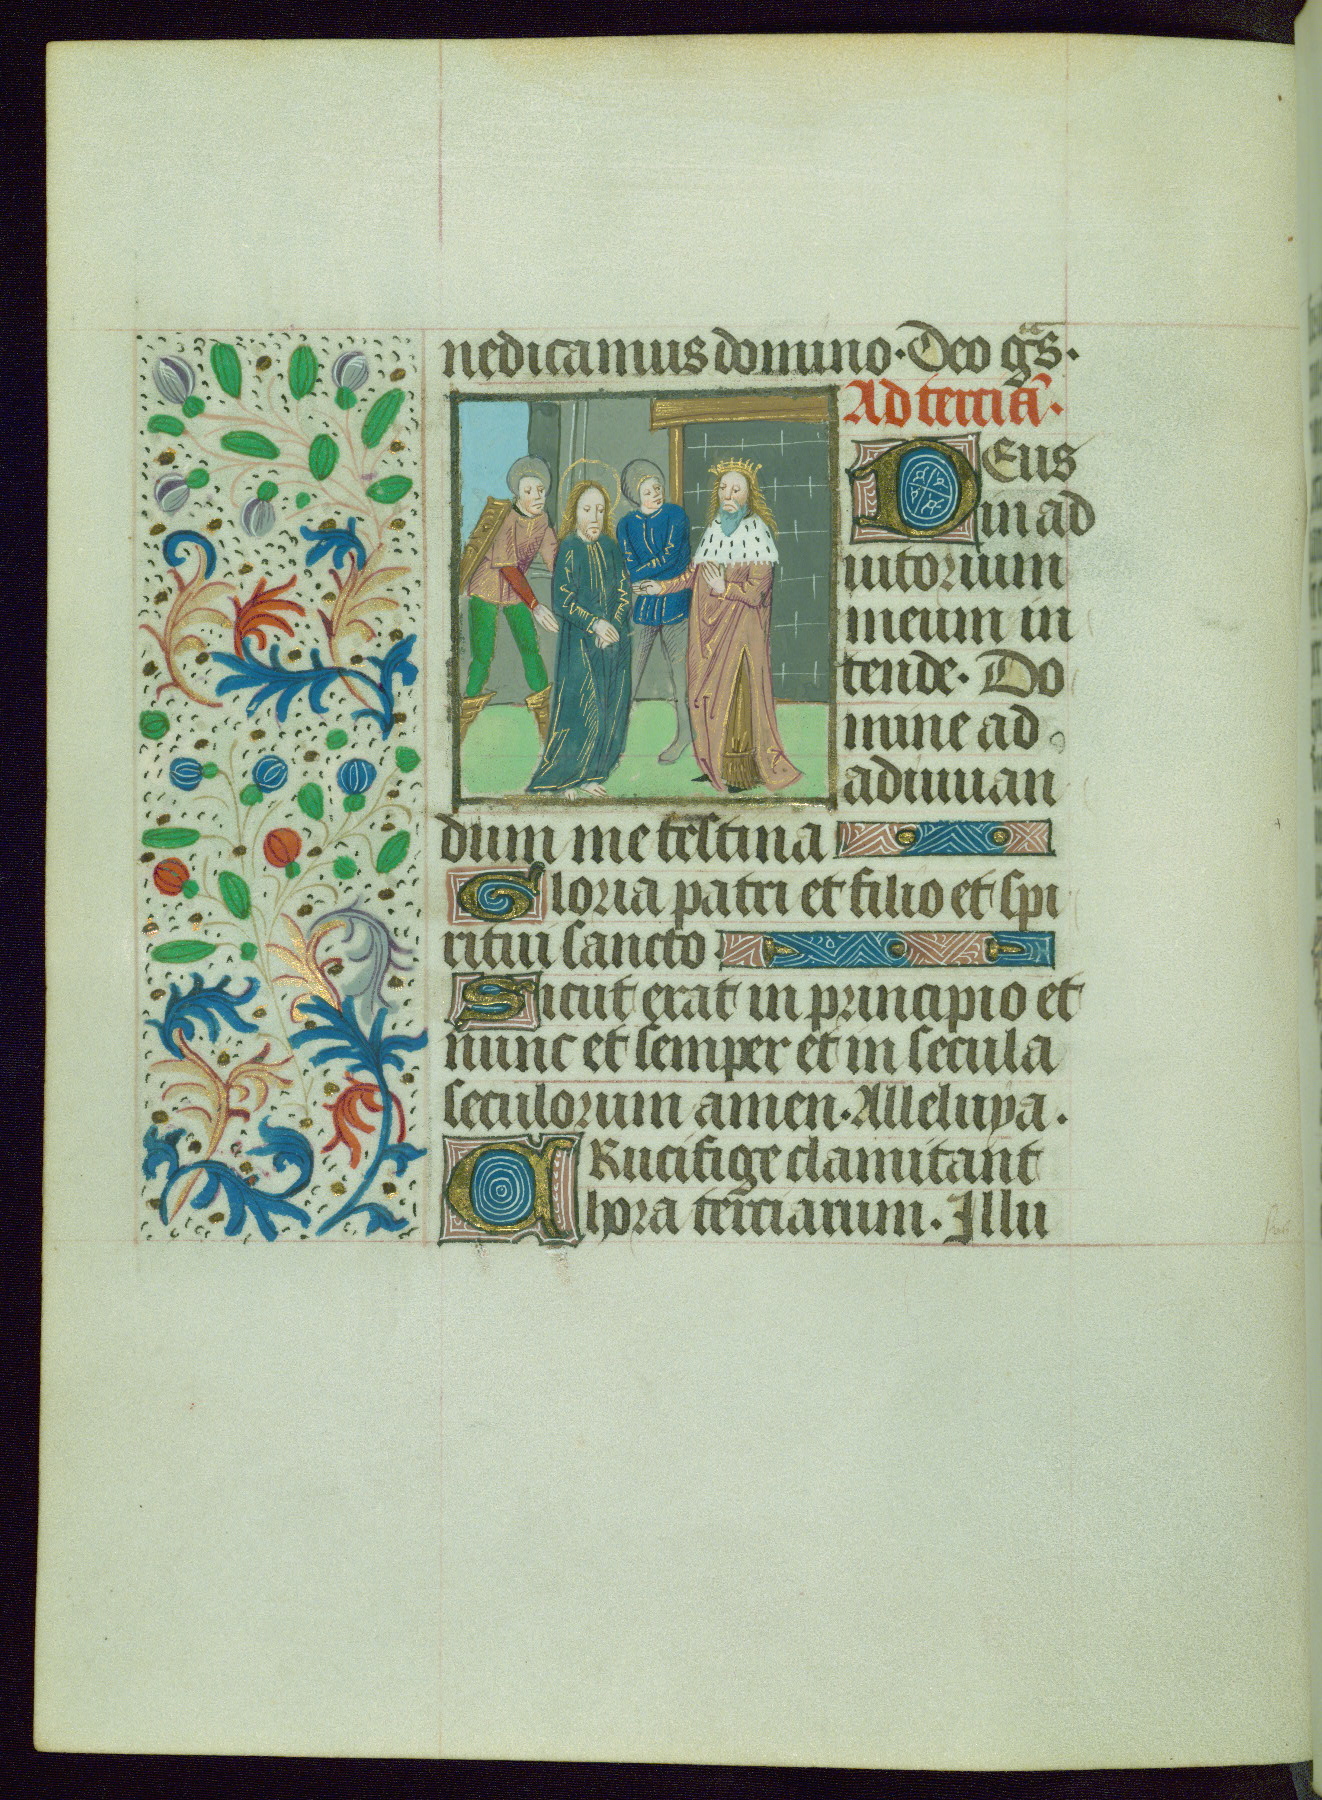 nedicamus domino. Deo gr̃s.
Ad terciã.
DEus
in ad
iutorium
meum in
tende. Do
mine ad
adiuuan
dum me festina
Gloria patri et filio et spi
ritui sancto
Sicut erat in principio et
nunc et semper et in secula
seculorum amen. Alleluya.
CRucifige clamitant
hora terciarum. Illu